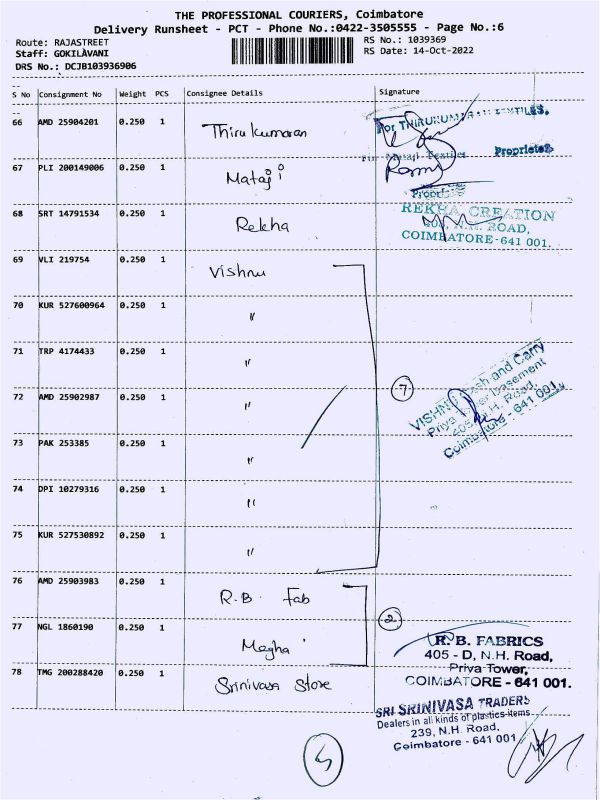 THE PROFESSIONAL COURIERS, Coimbatore
Delivery Runsheet - PCT - Phone No.:0422-3505555 - Page No.:6
Route: RAJASTREET
RS No.: 1039369
Staff: GOKILAVANI
RS Date: 14-Oct-2022
DRS No.: DCJB103936906
S No Consignment No Weight PCS Consignee Details Signature
66 AMD 25904201 0.250 1 Thirukumaran
For THIRUKUMARAN TEXTILES.
Proprietor
67 PLI 200149006 0.250 1 Mataji
For Mataji Textiles
Proprietor
68 SRT 14791534 0.250 1 Rekha
REKHA CREATION
N.H. ROAD,
COIMBATORE-641 001.
69 VLI 219754 0.250 1 Vishnu
70 KUR 527600964 0.250 1 "
71 TRP 4174433 0.250 1 "
72 AMD 25902987 0.250 1 "
7
VISHNU Cash and Carry
Priya Tower Basement
405, N.H. Road,
Coimbatore - 641 001.
73 PAK 253385 0.250 1 "
74 DPI 10279316 0.250 1 "
75 KUR 527530892 0.250 1 "
76 AMD 25903983 0.250 1 R.B. Fab
2
77 NGL 1860190 0.250 1 Megha
R. B. FABRICS
405 - D, N.H. Road,
Priya Tower,
COIMBATORE - 641 001.
78 TMG 200288420 0.250 1 Srinivasa Store
SRI SRINIVASA TRADERS
Dealers in all kinds of plastics items
239, N.H. Road,
Coimbatore - 641 001